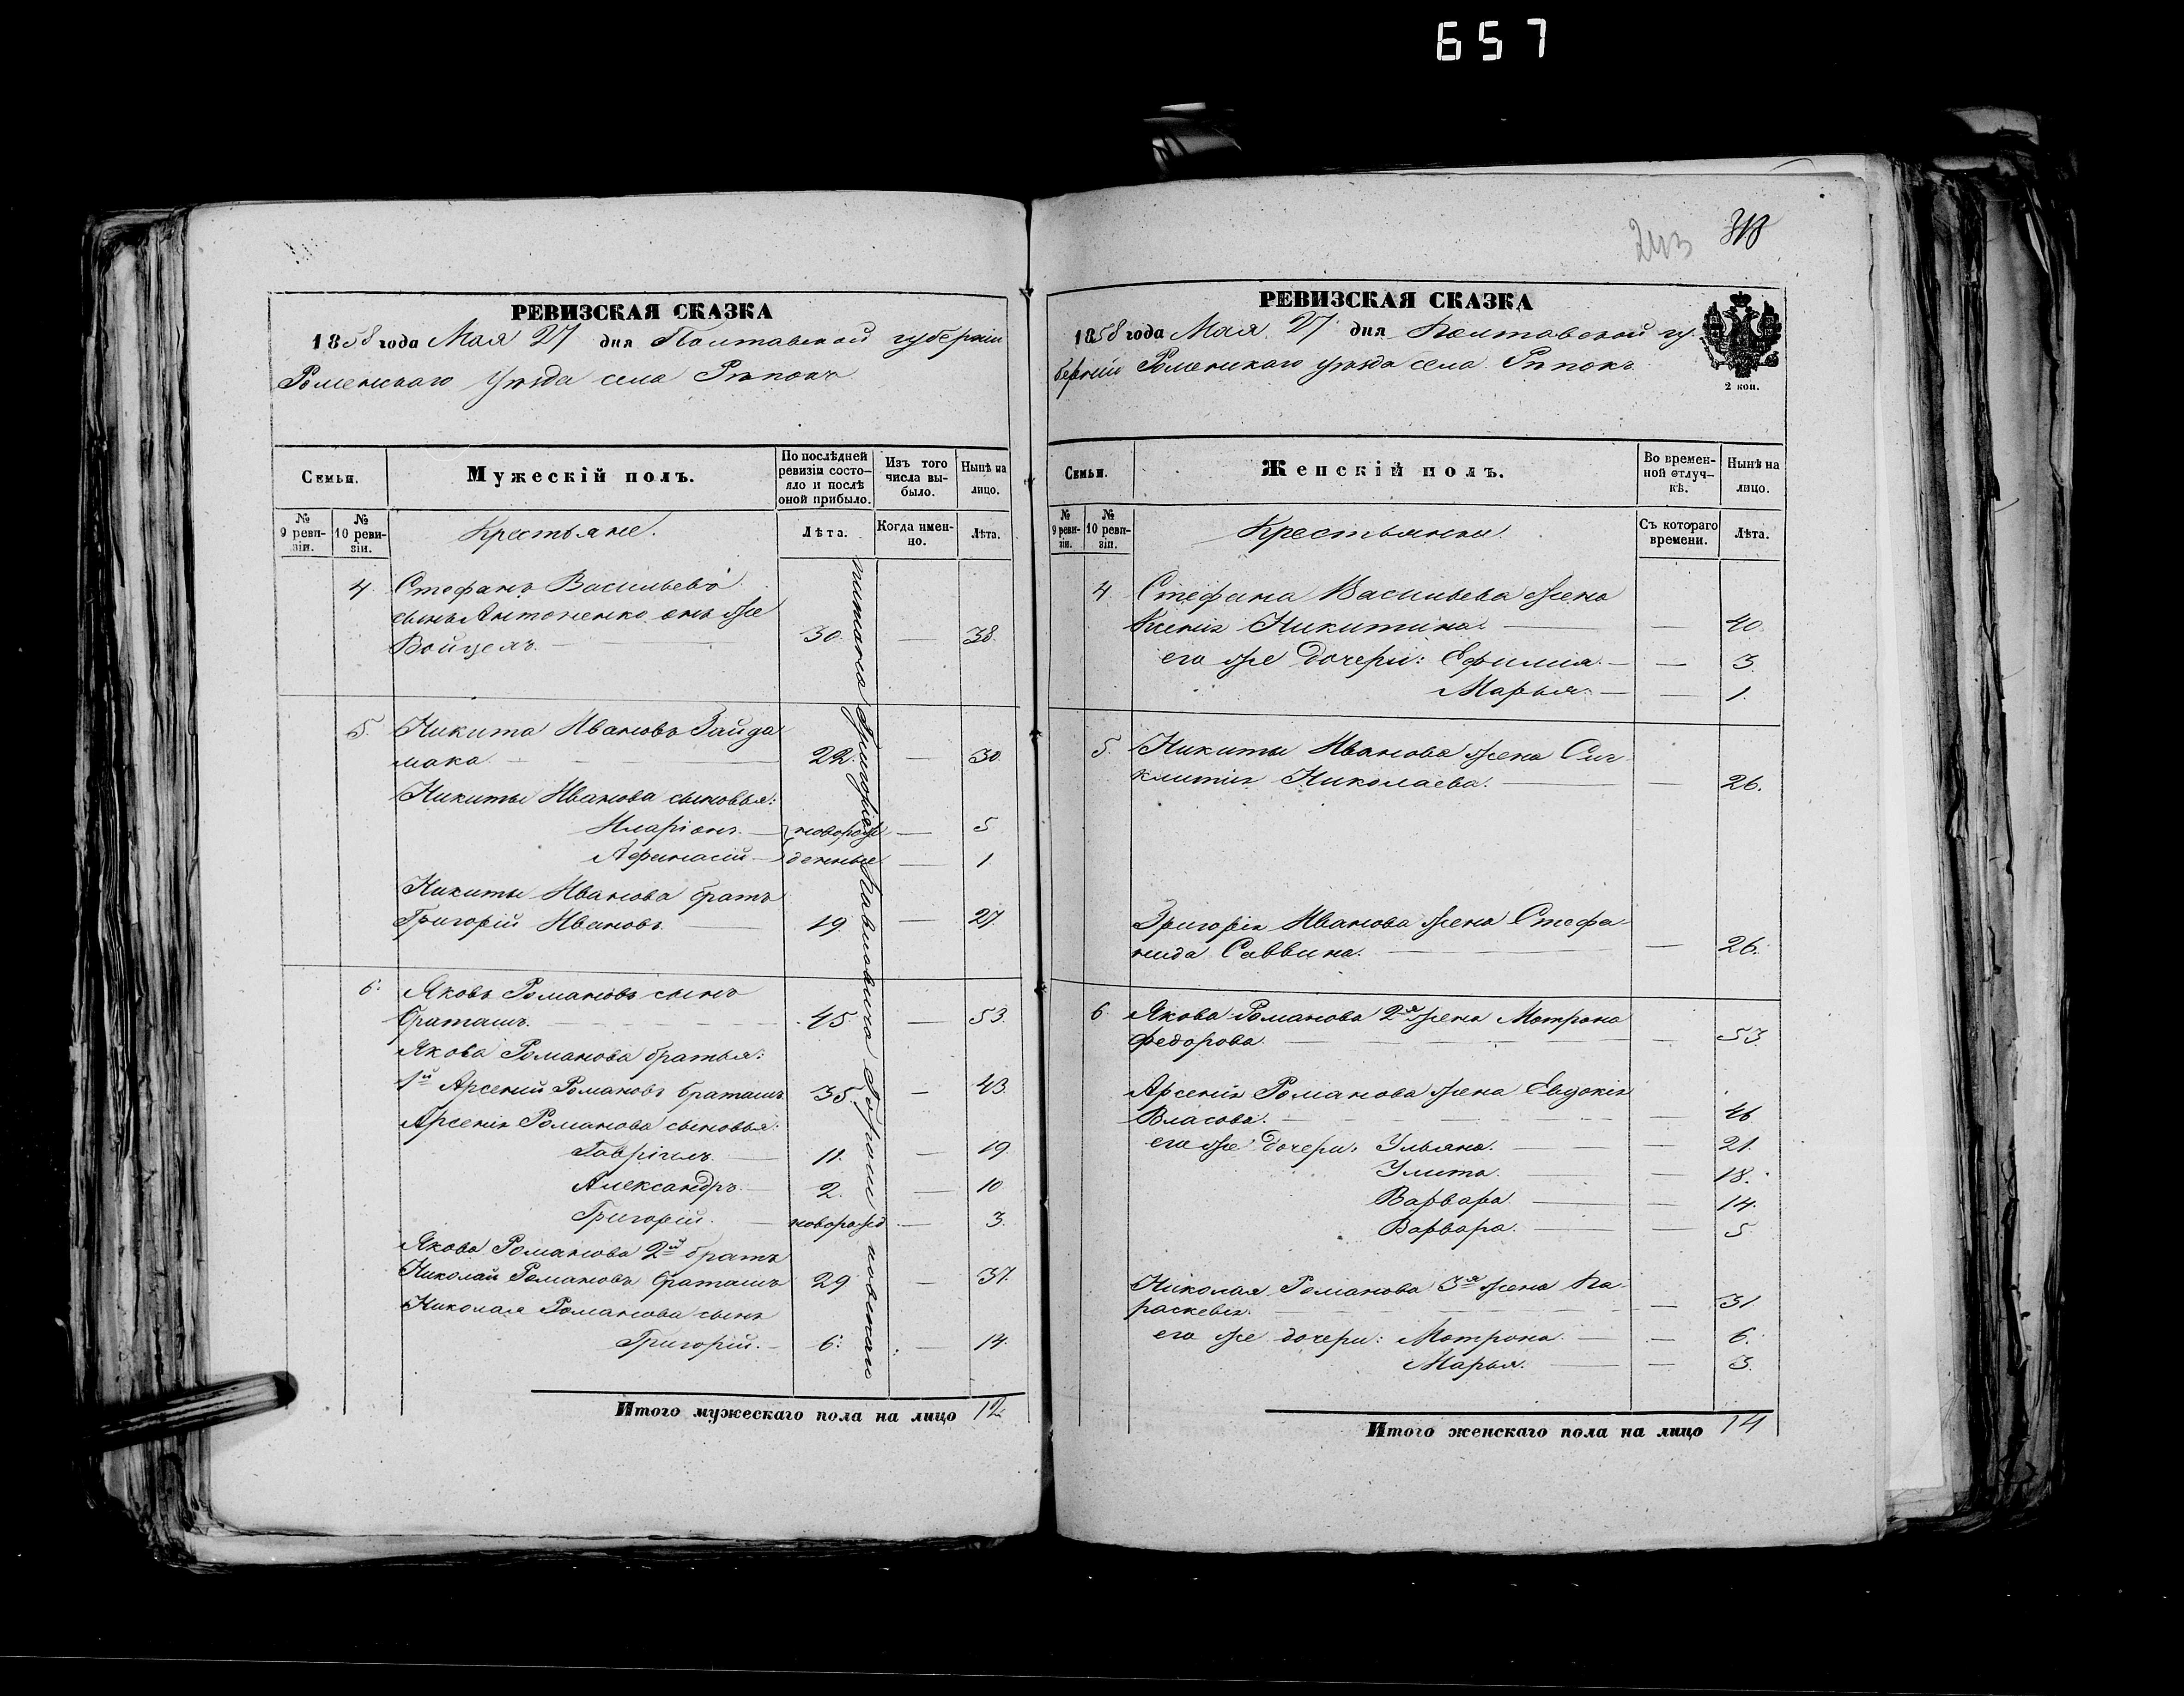 657
РЕВИЗСКАЯ СКАЗКА
1858 года Мая 27 дня Полтавской губернiи
Роменскаго уѣзда села Рѣпокъ
Семьи.
Мужескiй полъ.
По послѣдней ревизiи состояло и послѣ оной прибыло.
Изъ того числа выбыло.
Нынѣ на лицо.
№ 9 ревизiи.
№ 10 ревизiи.
Крестьяне.
Лѣта.
Когда именно.
Лѣта.
4 Стефанъ Васильевъ
сынъ Антоненко онъ же
Войцехъ. — 30. — 38.
5. Никита Ивановъ Гайда
мака — 22. — 30.
Никиты Иванова сыновья:
Иларiонъ. — новорож — 5
Афанасiй — денные — 1
Никиты Иванова братъ
Григорiй Ивановъ — 19. — 27.
6. Яковъ Романовъ сынъ
Браташъ. — 45 — 53.
Якова Романова братья:
1й Арсенiй Романовъ Браташъ 35. — 43.
Арсенiя Романова сыновья:
Гаврiилъ — 11. — 19.
Александръ — 2. — 10
Григорiй. — новорожд — 3.
Якова Романова 2й братъ
Николай Романовъ Браташъ 29 — 37.
Николая Романова сынъ
Григорiй. — 6. — 14.
Итого мужескаго пола на лицо 12
титана Григорiя Павловича
243
318
РЕВИЗСКАЯ СКАЗКА
1858 года Мая 27 дня Полтавской гу-
бернiи Роменскаго уѣзда села Рѣпокъ
2 коп.
Семьи.
Женскiй полъ.
Во временной отлучкѣ.
Нынѣ на лицо.
№ 9 ревизiи.
№ 10 ревизiи.
Крестьянки.
Съ котораго времени.
Лѣта.
4. Стефана Васильева жена
Ксенiя Никитина. — — 40.
его же дочери: Ефимiя. — — 3.
Марья. — — 1.
5. Никиты Иванова жена Син-
клитiя Николаева. — — 26.
Григорiя Иванова жена Стефа-
нида Саввина. — — 26.
6 Якова Романова 2я жена Мотрона
Федорова. — — 53.
Арсенiя Романова жена Евдокiя
Власова. — — 46
его же дочери: Ульяна. — — 21.
Улита. — — 18.
Варвара. — — 14.
Варвара. — — 5
Николая Романова 3я жена Па-
раскевiя. — — 31.
его же дочери: Мотрона. — — 6.
Марья. — — 3.
Итого женскаго пола на лицо 14